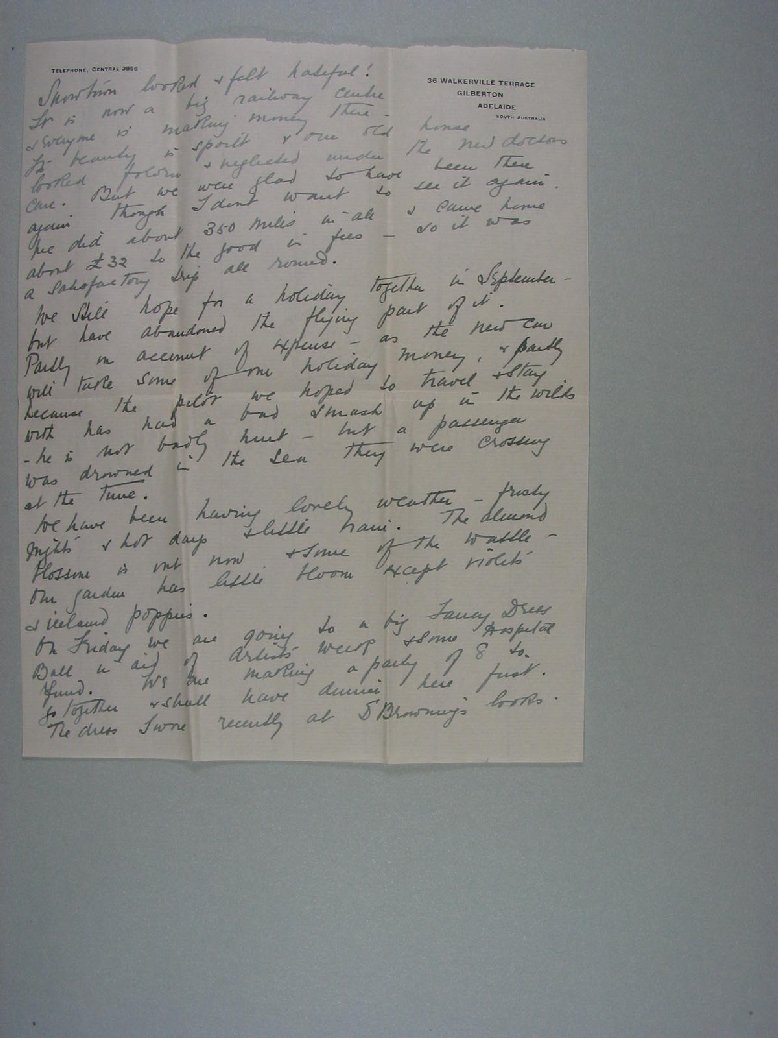 TELEPHONE, CENTRAL 3956
36 WALKERVILLE TERRACE
GILBERTON
ADELAIDE
SOUTH AUSTRALIA
Snowtown looked & felt hateful!
It is now a big railway centre
& everyone is making money there -
Its beauty is spoilt & our old house
looked forlorn & neglected under the new doctors
care. But we were glad to have been there
again though I dont want to see it again.
We did about 350 miles in all & came home
about £32 to the good in fees - so it was
a satisfactory trip all round.
We still hope for a holiday together in September -
but have abandoned the flying part of it.
Partly on account of expense - as the new car
will take some of our holiday money, & partly
because the pilot we hoped to travel & stay
with has had a bad smash up in the wilds
- he is not badly hurt - but a passenger
was drowned in the sea they were crossing
at the time.
We have been having lovely weather - frosty
nights & hot days & little rain. The almond
blossom is out now & some of the wattle -
Our garden has little bloom except violets
& iceland poppies.
On Friday we are going to a big Fancy Dress
Ball in aid of artists & some Hospital
fund. We are making a party of 8 to
go together & shall have dinner here first.
The dress I wore recently at Browning's looks